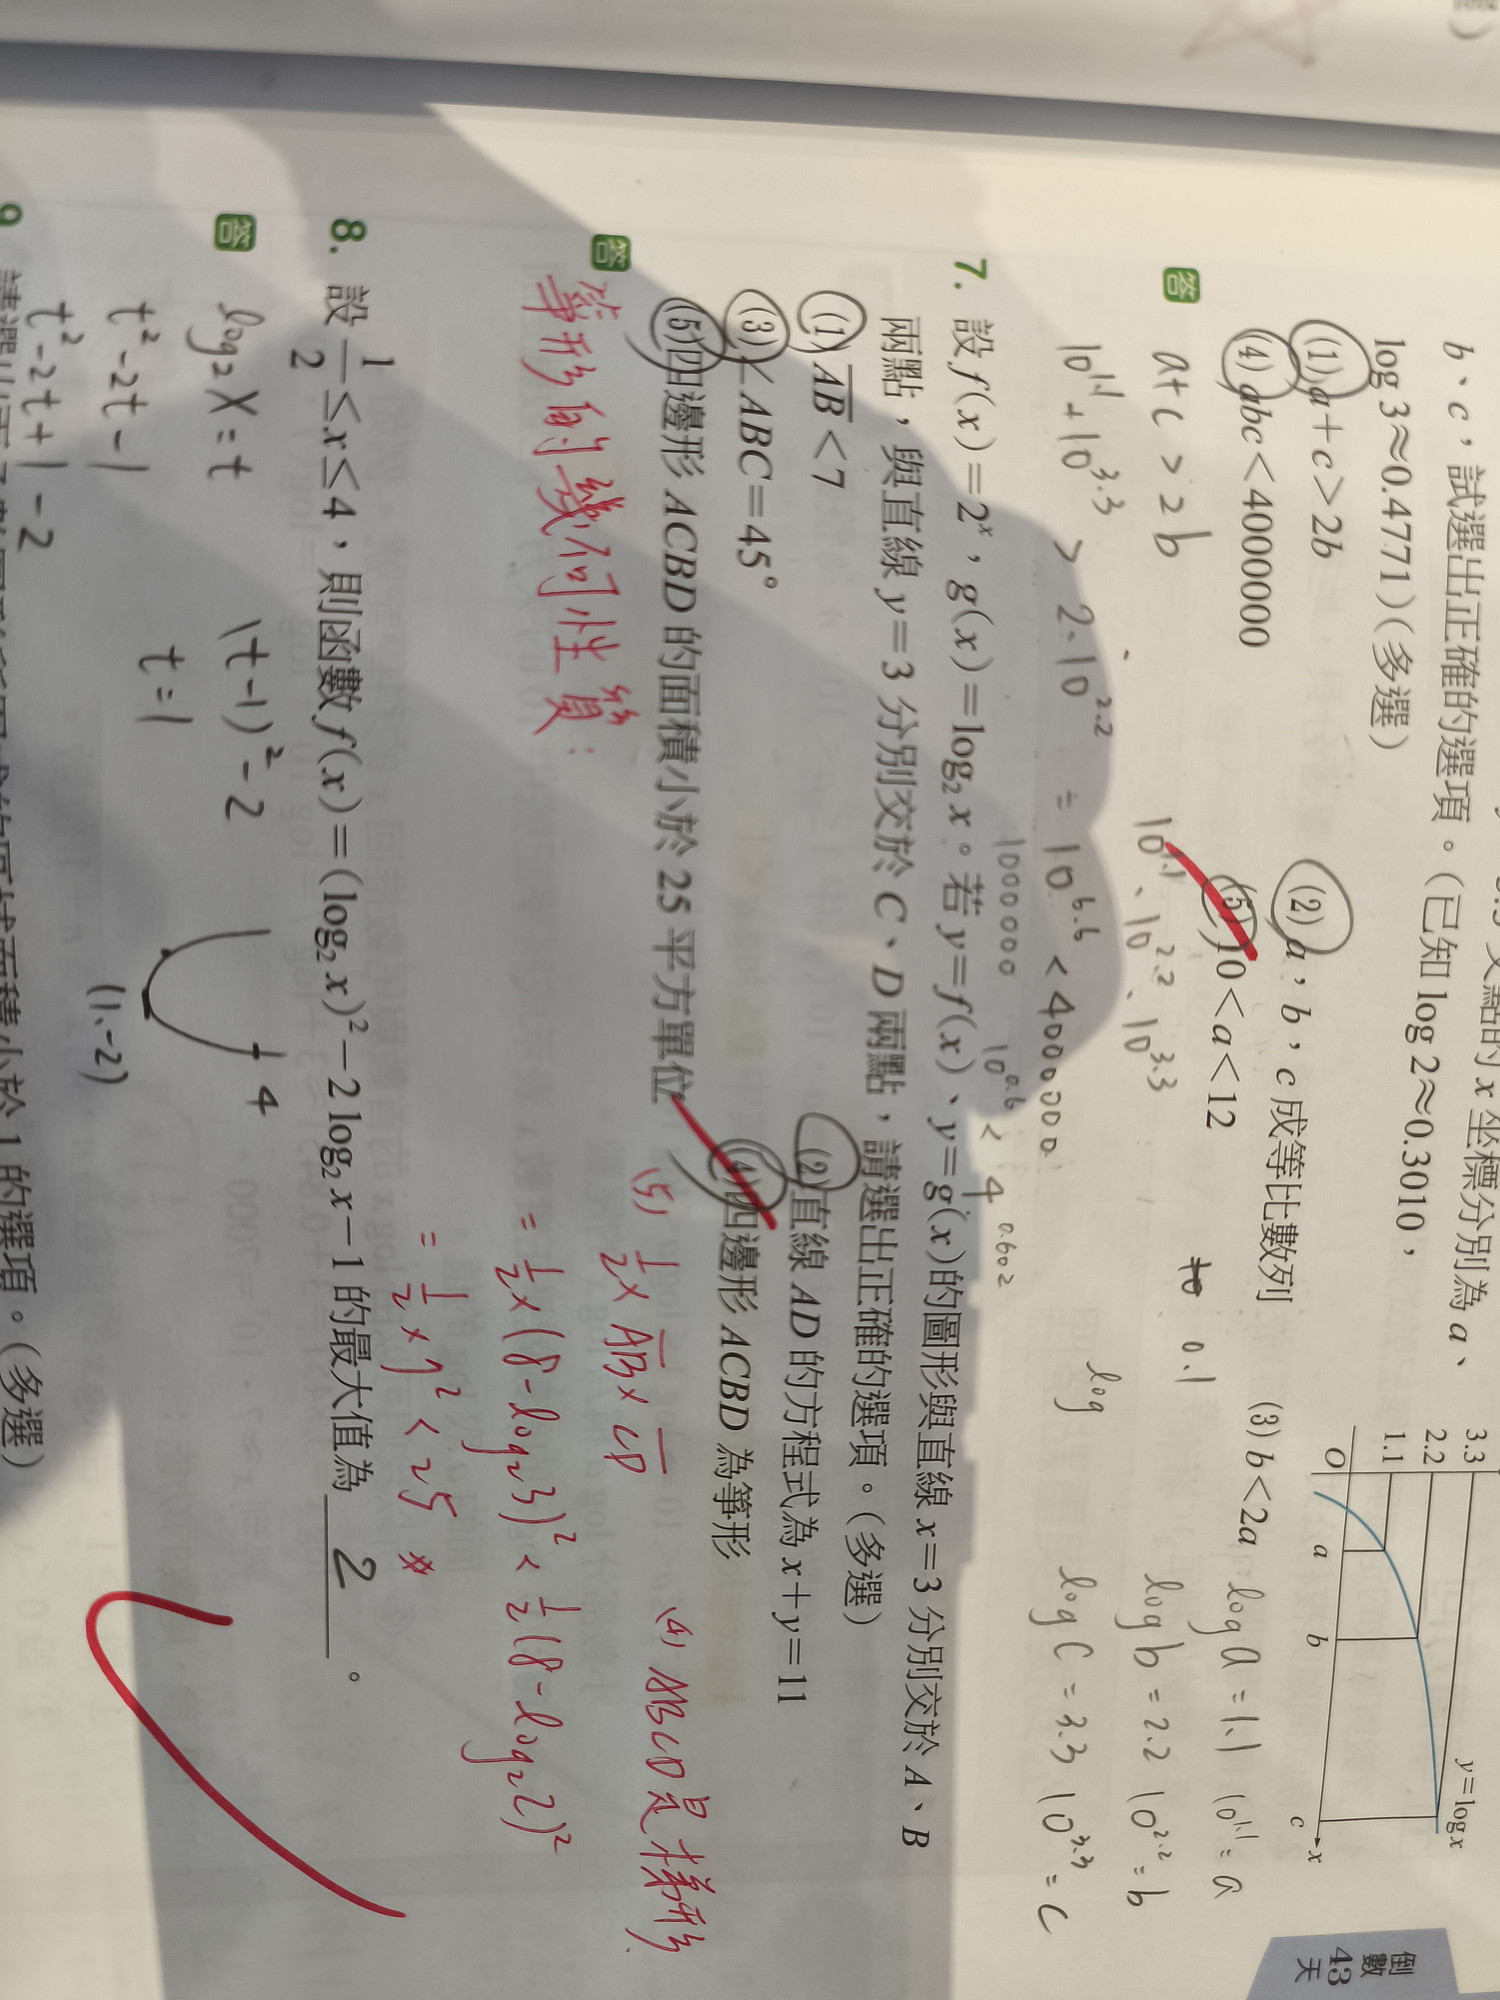 3.3 交點的 x 坐標分別為 a、
b、c,試選出正確的選項。(已知 log 2≈0.3010,
log 3≈0.4771)(多選)
(1) a+c>2b
(2) a,b,c 成等比數列
(3) b<2a
(4) abc<4000000
(5) 10<a<12
3.3
2.2
1.1
O
a
b
c
x
y=log x
答
a+c>2b
10^1.1、10^2.2、10^3.3
10^1.1+10^3.3 > 2·10^2.2
=10^6.6<4000000
1000000
10^0.6<4
0.602
0.1
log
log a=1.1 10^1.1=a
log b=2.2 10^2.2=b
log c=3.3 10^3.3=c
7. 設 f(x)=2^x,g(x)=log₂x。若 y=f(x)、y=g(x)的圖形與直線 x=3 分別交於 A、B
兩點,與直線 y=3 分別交於 C、D 兩點,請選出正確的選項。(多選)
(1) AB<7
(2) 直線 AD 的方程式為 x+y=11
(3) ∠ABC=45°
(4) 四邊形 ACBD 為箏形
(5) 四邊形 ACBD 的面積小於 25 平方單位
答
箏形的幾何性質:
(4) ABCD是梯形
(5) 1/2×AB×CD
=1/2×(8-log₂3)²<1/2(8-log₂2)²
=1/2×7²<25
8. 設 1/2≤x≤4,則函數 f(x)=(log₂x)²−2log₂x−1 的最大值為 2 。
答
log₂X=t
t²-2t-1
t²-2t+1-2
(t-1)²-2
t=1
4
(1、-2)
9.
的區域面積小於 1 的選項。(多選)
倒數
43
天